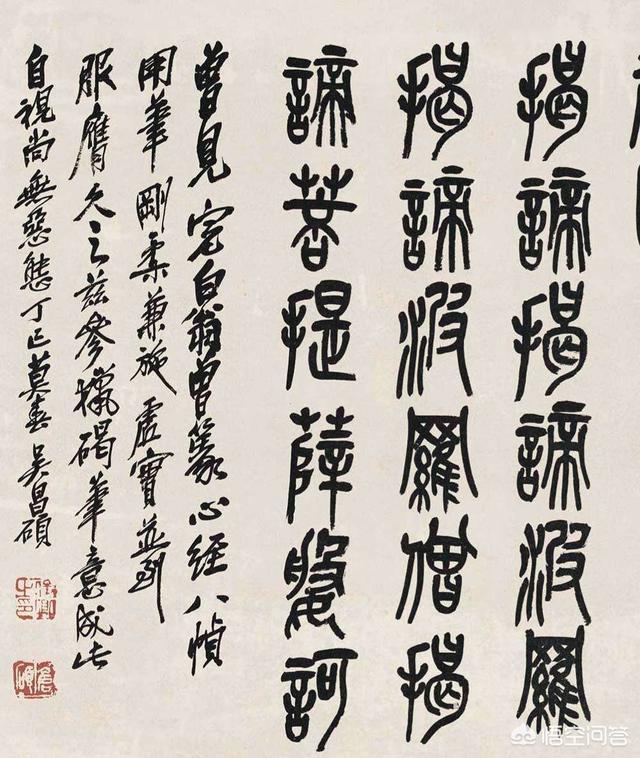 揭諦揭諦波羅
揭諦波羅僧揭
諦菩提薩婆訶
曾見完白翁曾篆心經八幀
用筆剛柔兼施虛實並到
服膺久之茲參獵碣筆意成此
自視尚無惡態丁巳莫春吳昌碩
俊卿之印
倉碩
悟空问答